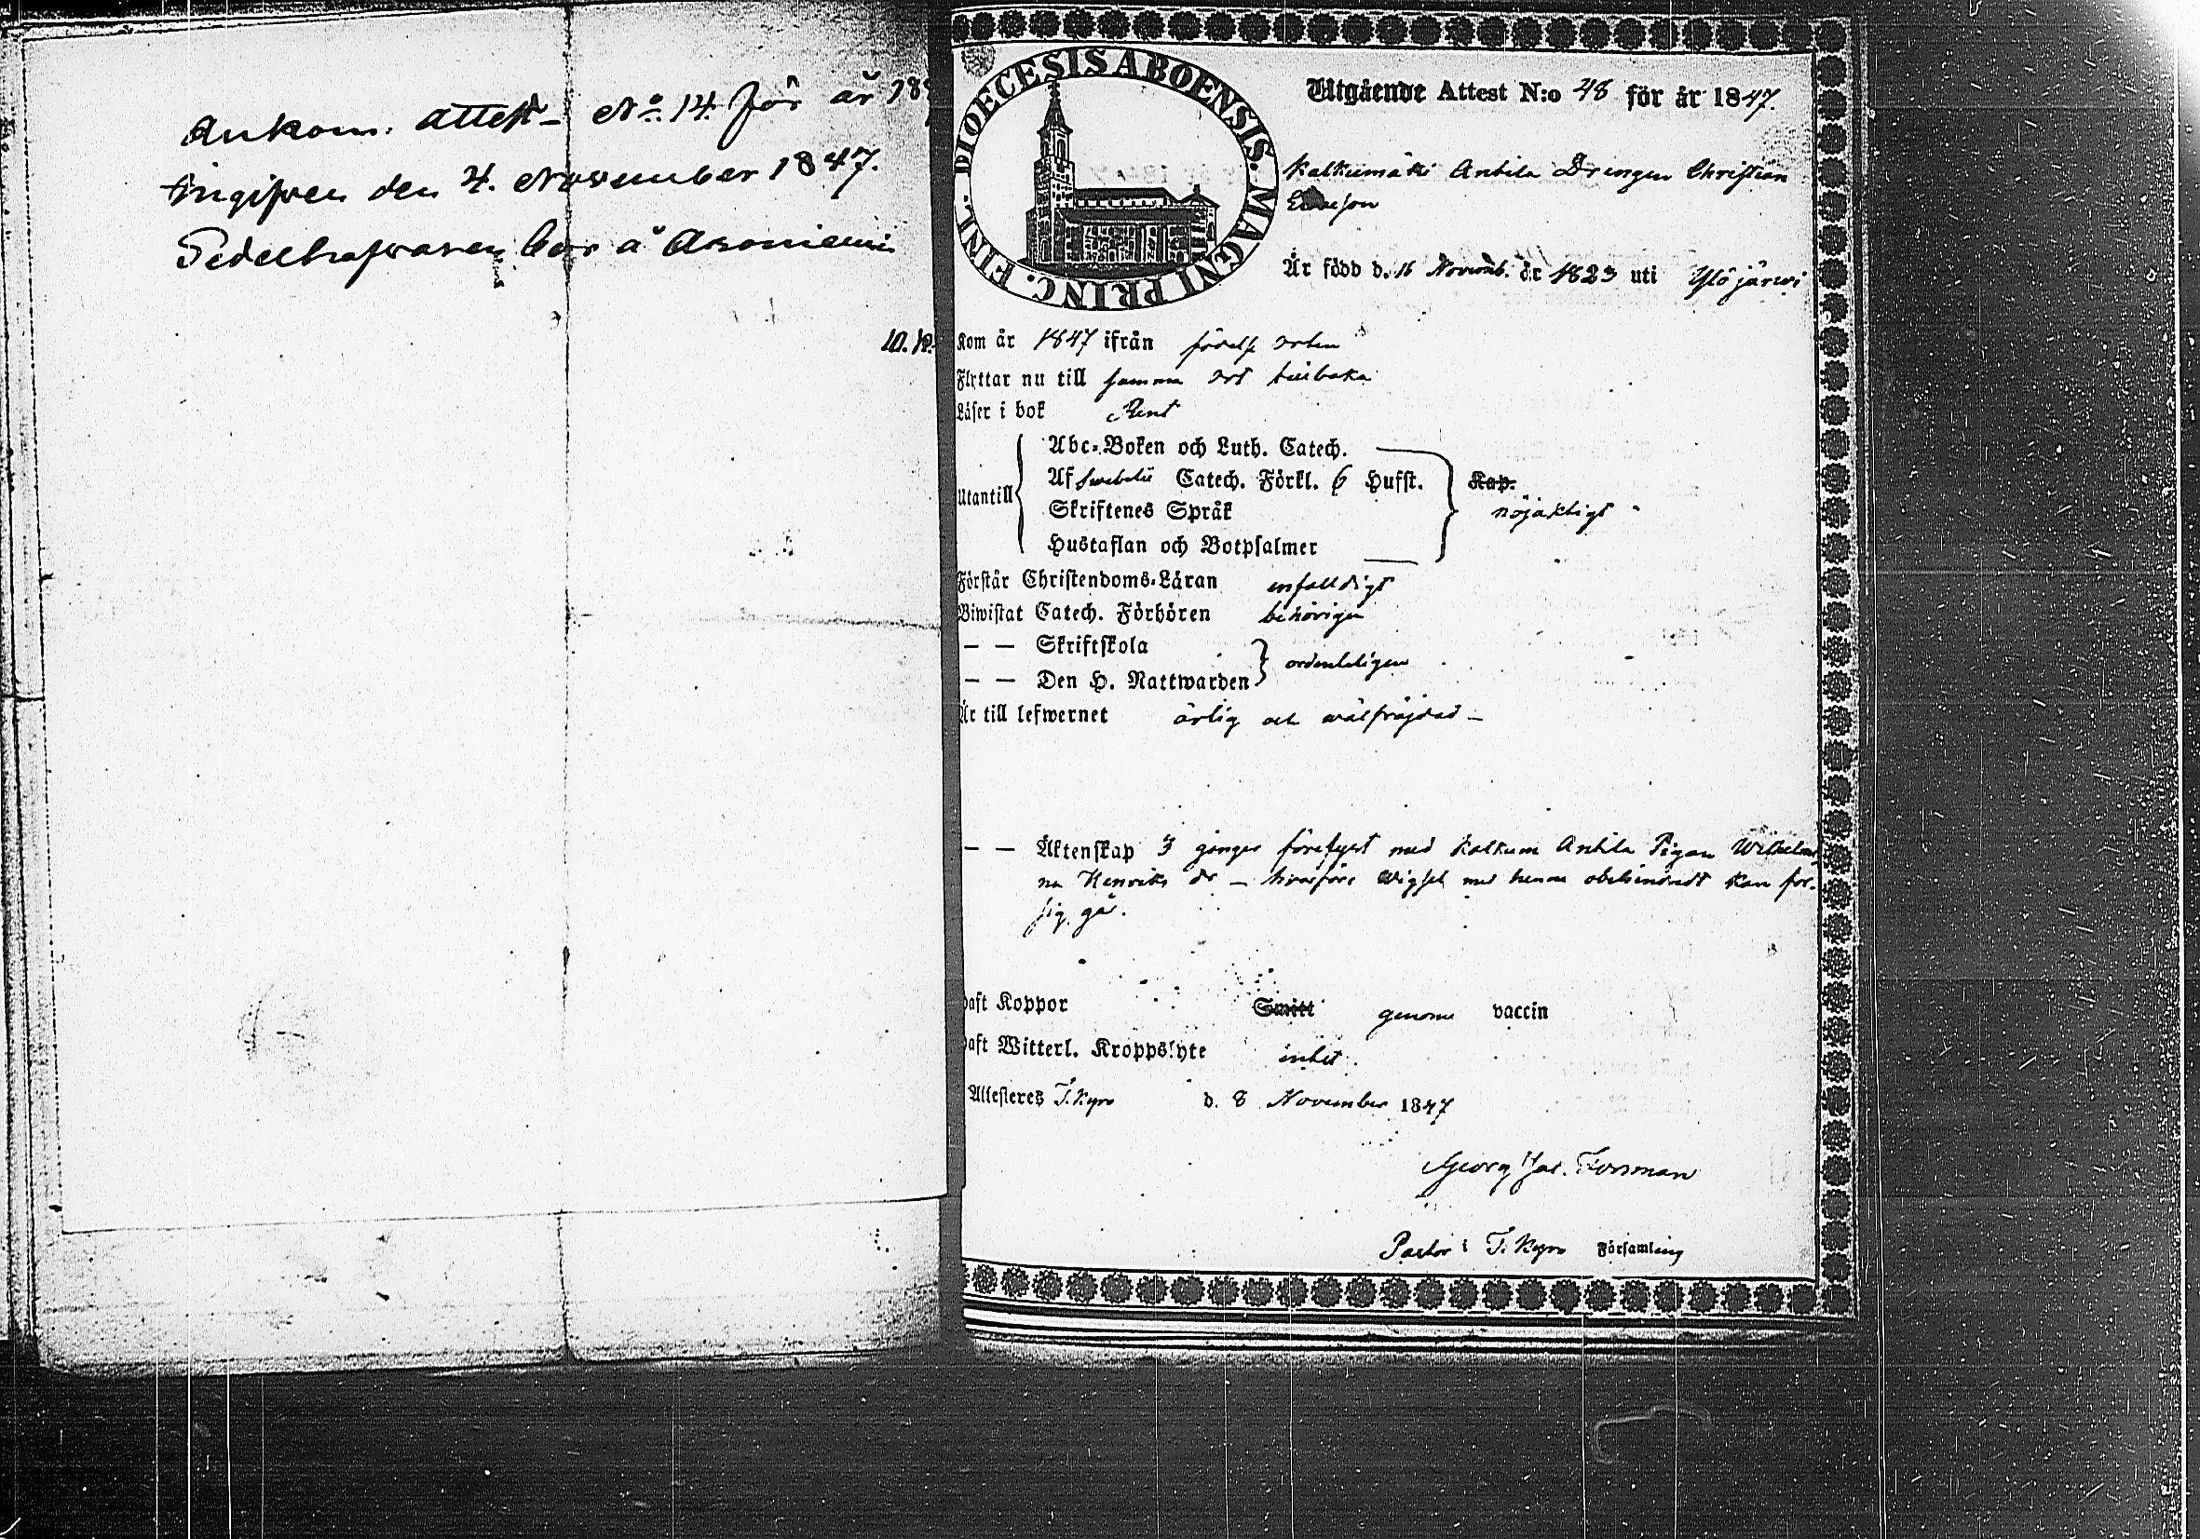 Ankom. attest No. 14 för år 18
Ingifven den 4. November 1847.
Sedelhafvaren bor å Asoniemi
10. 12.
DIOECESIS ABOENSIS. MAGNI PRINC. FINL.
Utgående Attest N:o 48 för år 1847.
Kalkumäki Antila Drengen Christian
Är född d. 16 Novemb. år 1823 uti Ylöjärwi
Kom år 1847 ifrån födelse orten
Flyttar nu till samma ort tillbaka
Läser i bok Rent
Utantill
Abc-Boken och Luth. Catech.
Af Swebelii Catech. Förkl. 6 Hufst.
Skriftenes Språk
Hustaflan och Botpsalmer
Kap.
nöjaktigt
Förstår Christendoms-Läran enfalldigt
Biwistat Catech. Förhören behörigen
— — Skriftskola
— — Den H. Nattwarden
ordenteligen
Är till lefwernet ärlig och wälfräjdad —
— — Äktenskap 3 gånger förelyst med Kalkum Antila Pigan Wilhelmi
na Henriks dr — hwarföre Wigsel med henne obehindradt kan för
sig gå.
Haft Koppor Smitt genom vaccin
Haft Witterl. Kroppslyte intet.
Attesteres T. Kyro d. 8 November 1847
Georg Jac. Forsman
Pastor i T. Kyro Församling